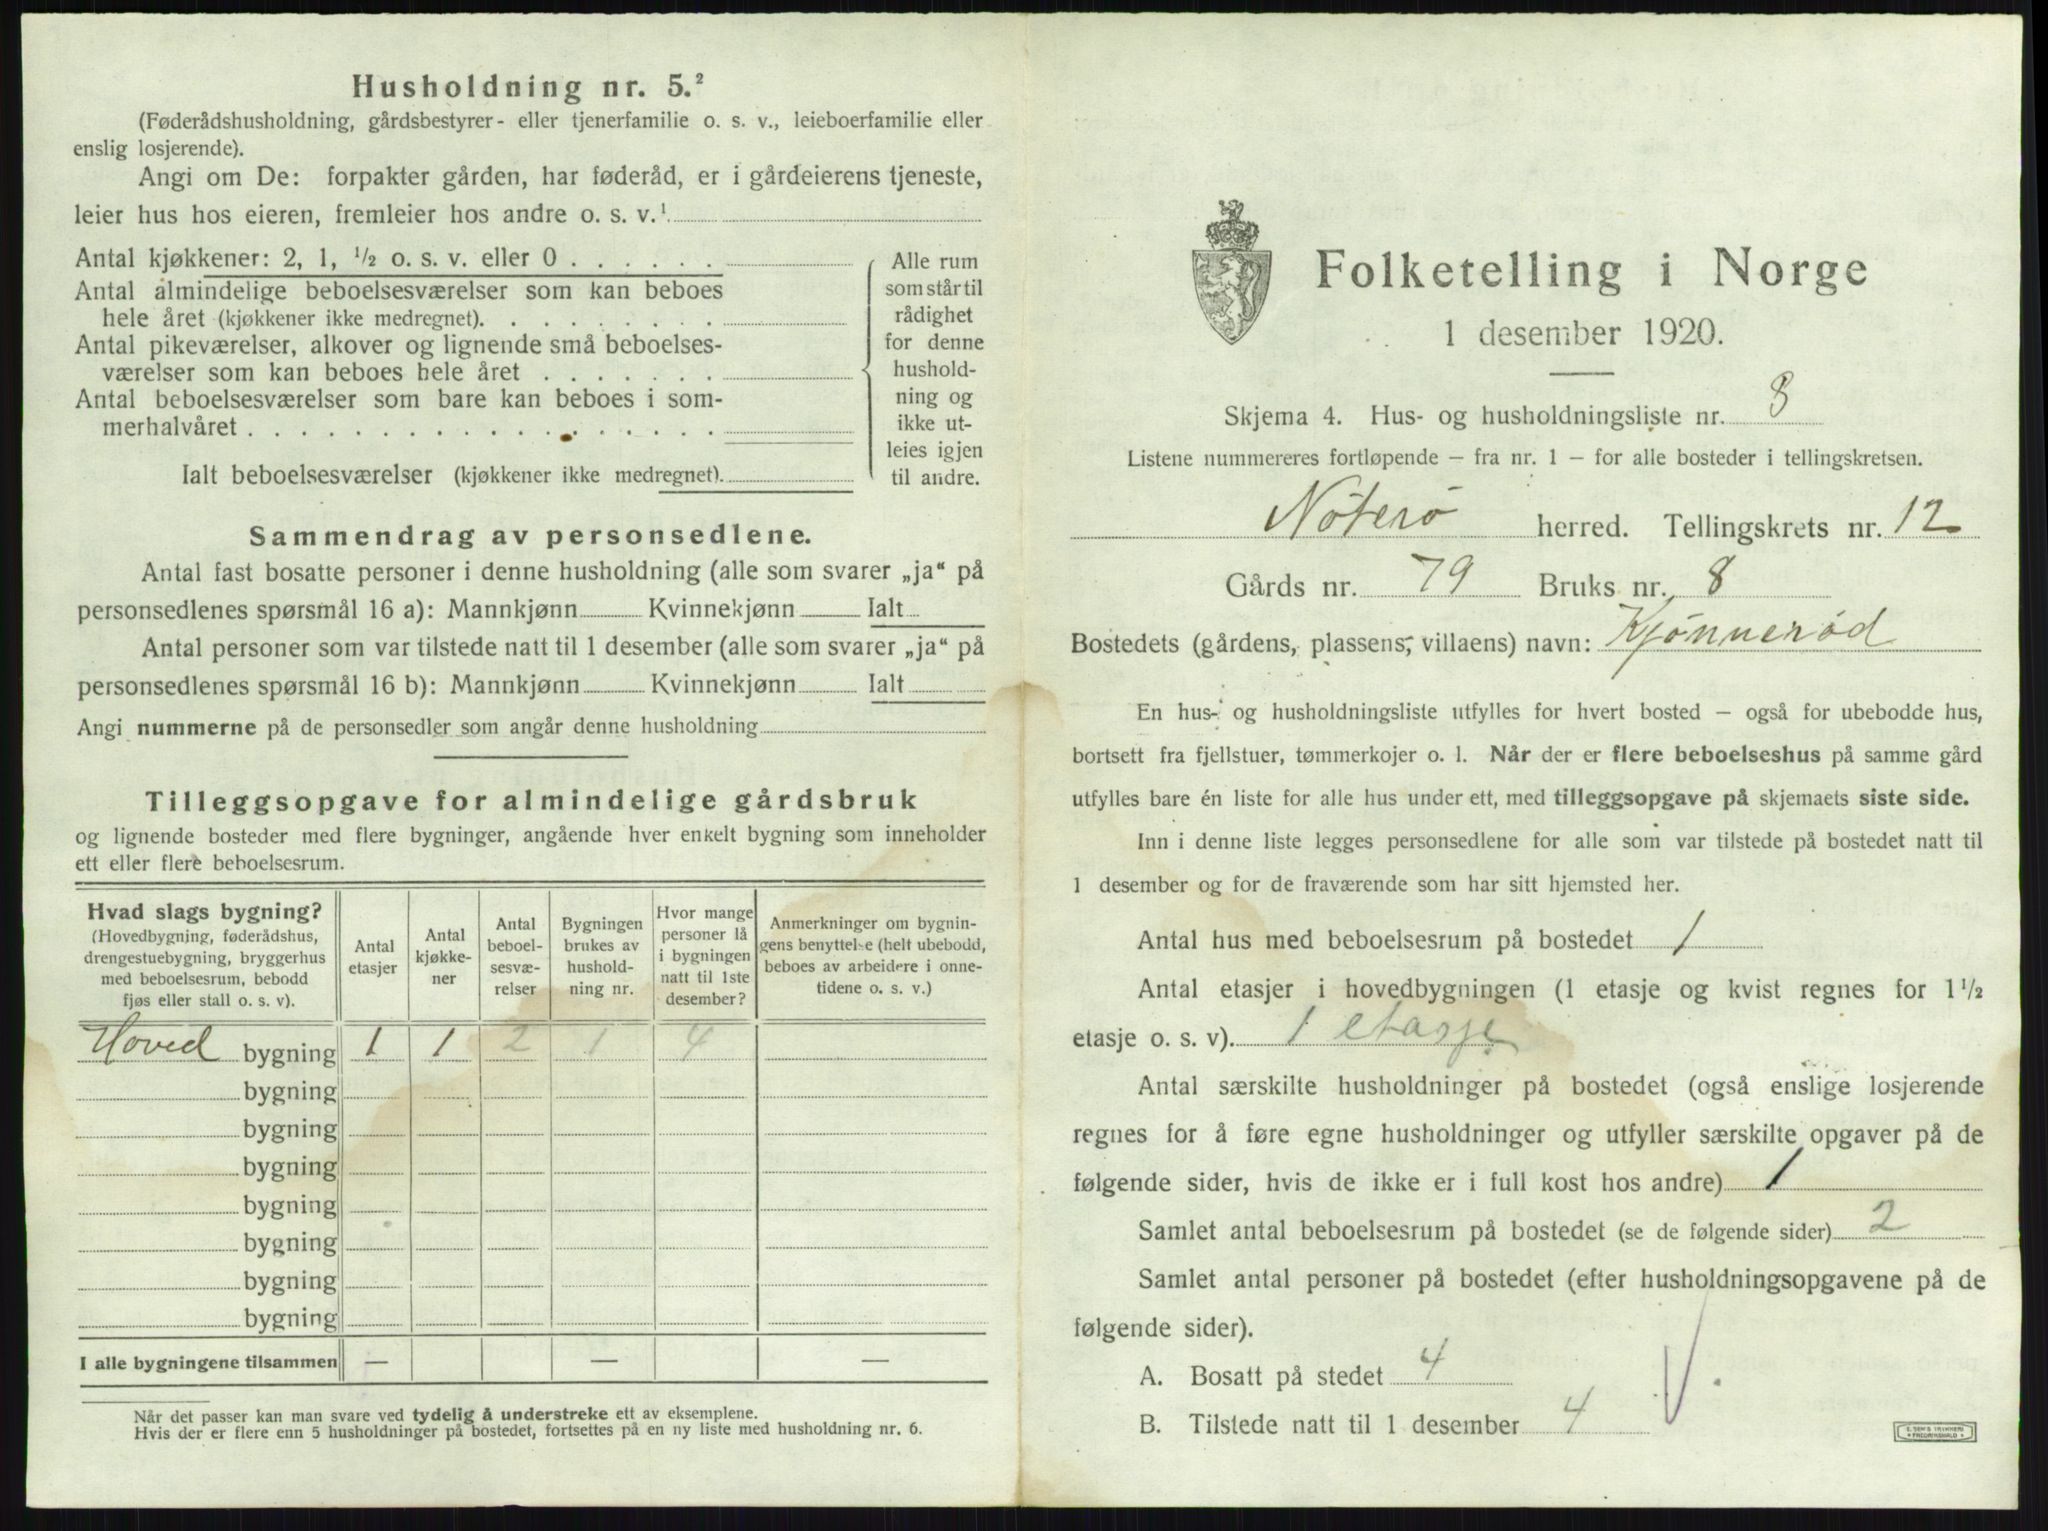 Husholdning nr. 5.²
(Føderådshusholdning, gårdsbestyrer- eller tjenerfamilie o. s. v., leieboerfamilie eller
enslig losjerende).
Angi om De: forpakter gården, har føderåd, er i gårdeierens tjeneste,
leier hus hos eieren, fremleier hos andre o. s. v.¹
Antal kjøkkener: 2, 1, ½ o. s. v. eller 0 . . . . . .
Antal almindelige beboelsesværelser som kan beboes
hele året (kjøkkener ikke medregnet). . . . . . . . .
Antal pikeværelser, alkover og lignende små beboelses-
værelser som kan beboes hele året . . . . . . .
Antal beboelsesværelser som bare kan beboes i som-
merhalvåret . . . . . . . . . . . . . . . . . .
Ialt beboelsesværelser (kjøkkener ikke medregnet).
Alle rum
som står til
rådighet
for denne
hushold-
ning og
ikke ut-
leies igjen
til andre.
Sammendrag av personsedlene.
Antal fast bosatte personer i denne husholdning (alle som svarer „ja“ på
personsedlenes spørsmål 16 a): Mannkjønn Kvinnekjønn Ialt
Antal personer som var tilstede natt til 1 desember (alle som svarer „ja“ på
personsedlenes spørsmål 16 b): Mannkjønn Kvinnekjønn Ialt
Angi nummerne på de personsedler som angår denne husholdning
Tilleggsopgave for almindelige gårdsbruk
og lignende bosteder med flere bygninger, angående hver enkelt bygning som inneholder
ett eller flere beboelsesrum.
Hvad slags bygning?
(Hovedbygning, føderådshus,
drengestuebygning, bryggerhus
med beboelsesrum, bebodd
fjøs eller stall o. s. v).
Antal
etasjer
Antal
kjøkke-
ner
Antal
beboel-
sesvæ-
relser
Bygningen
brukes av
hushold-
ning nr.
Hvor mange
personer lå
i bygningen
natt til 1ste
desember?
Anmerkninger om bygnin-
gens benyttelse (helt ubebodd,
beboes av arbeidere i onne-
tidene o. s. v.)
Hoved bygning 1 1 2 1 4
bygning
bygning
bygning
bygning
bygning
bygning
bygning
I alle bygningene tilsammen — — —
Når det passer kan man svare ved tydelig å understreke ett av eksemplene.
Hvis der er flere enn 5 husholdninger på bostedet, fortsettes på en ny liste med husholdning nr. 6.
Folketelling i Norge
1 desember 1920.
Skjema 4. Hus- og husholdningsliste nr. 8
Listene nummereres fortløpende – fra nr. 1 – for alle bosteder i tellingskretsen.
Nøterø herred. Tellingskrets nr. 12
Gårds nr. 79 Bruks nr. 8
Bostedets (gårdens, plassens, villaens) navn: Kjønnerød
En hus- og husholdningsliste utfylles for hvert bosted – også for ubebodde hus,
bortsett fra fjellstuer, tømmerkojer o. l. Når der er flere beboelseshus på samme gård
utfylles bare én liste for alle hus under ett, med tilleggsopgave på skjemaets siste side.
Inn i denne liste legges personsedlene for alle som var tilstede på bostedet natt til
1 desember og for de fraværende som har sitt hjemsted her.
Antal hus med beboelsesrum på bostedet 1
Antal etasjer i hovedbygningen (1 etasje og kvist regnes for 1½
etasje o. s. v). 1 etasje
Antal særskilte husholdninger på bostedet (også enslige losjerende
regnes for å føre egne husholdninger og utfyller særskilte opgaver på de
følgende sider, hvis de ikke er i full kost hos andre) 1
Samlet antal beboelsesrum på bostedet (se de følgende sider) 2
Samlet antal personer på bostedet (efter husholdningsopgavene på de
følgende sider).
A. Bosatt på stedet 4
B. Tilstede natt til 1 desember 4